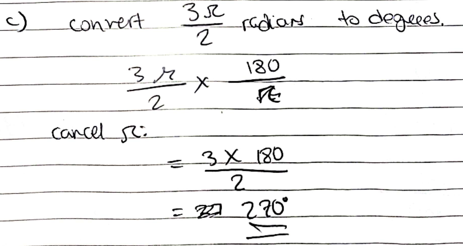 c) convert 3π/2 radians to degrees.
3π/2 × 180/π
cancel π:
= 3 × 180/2
= 270°